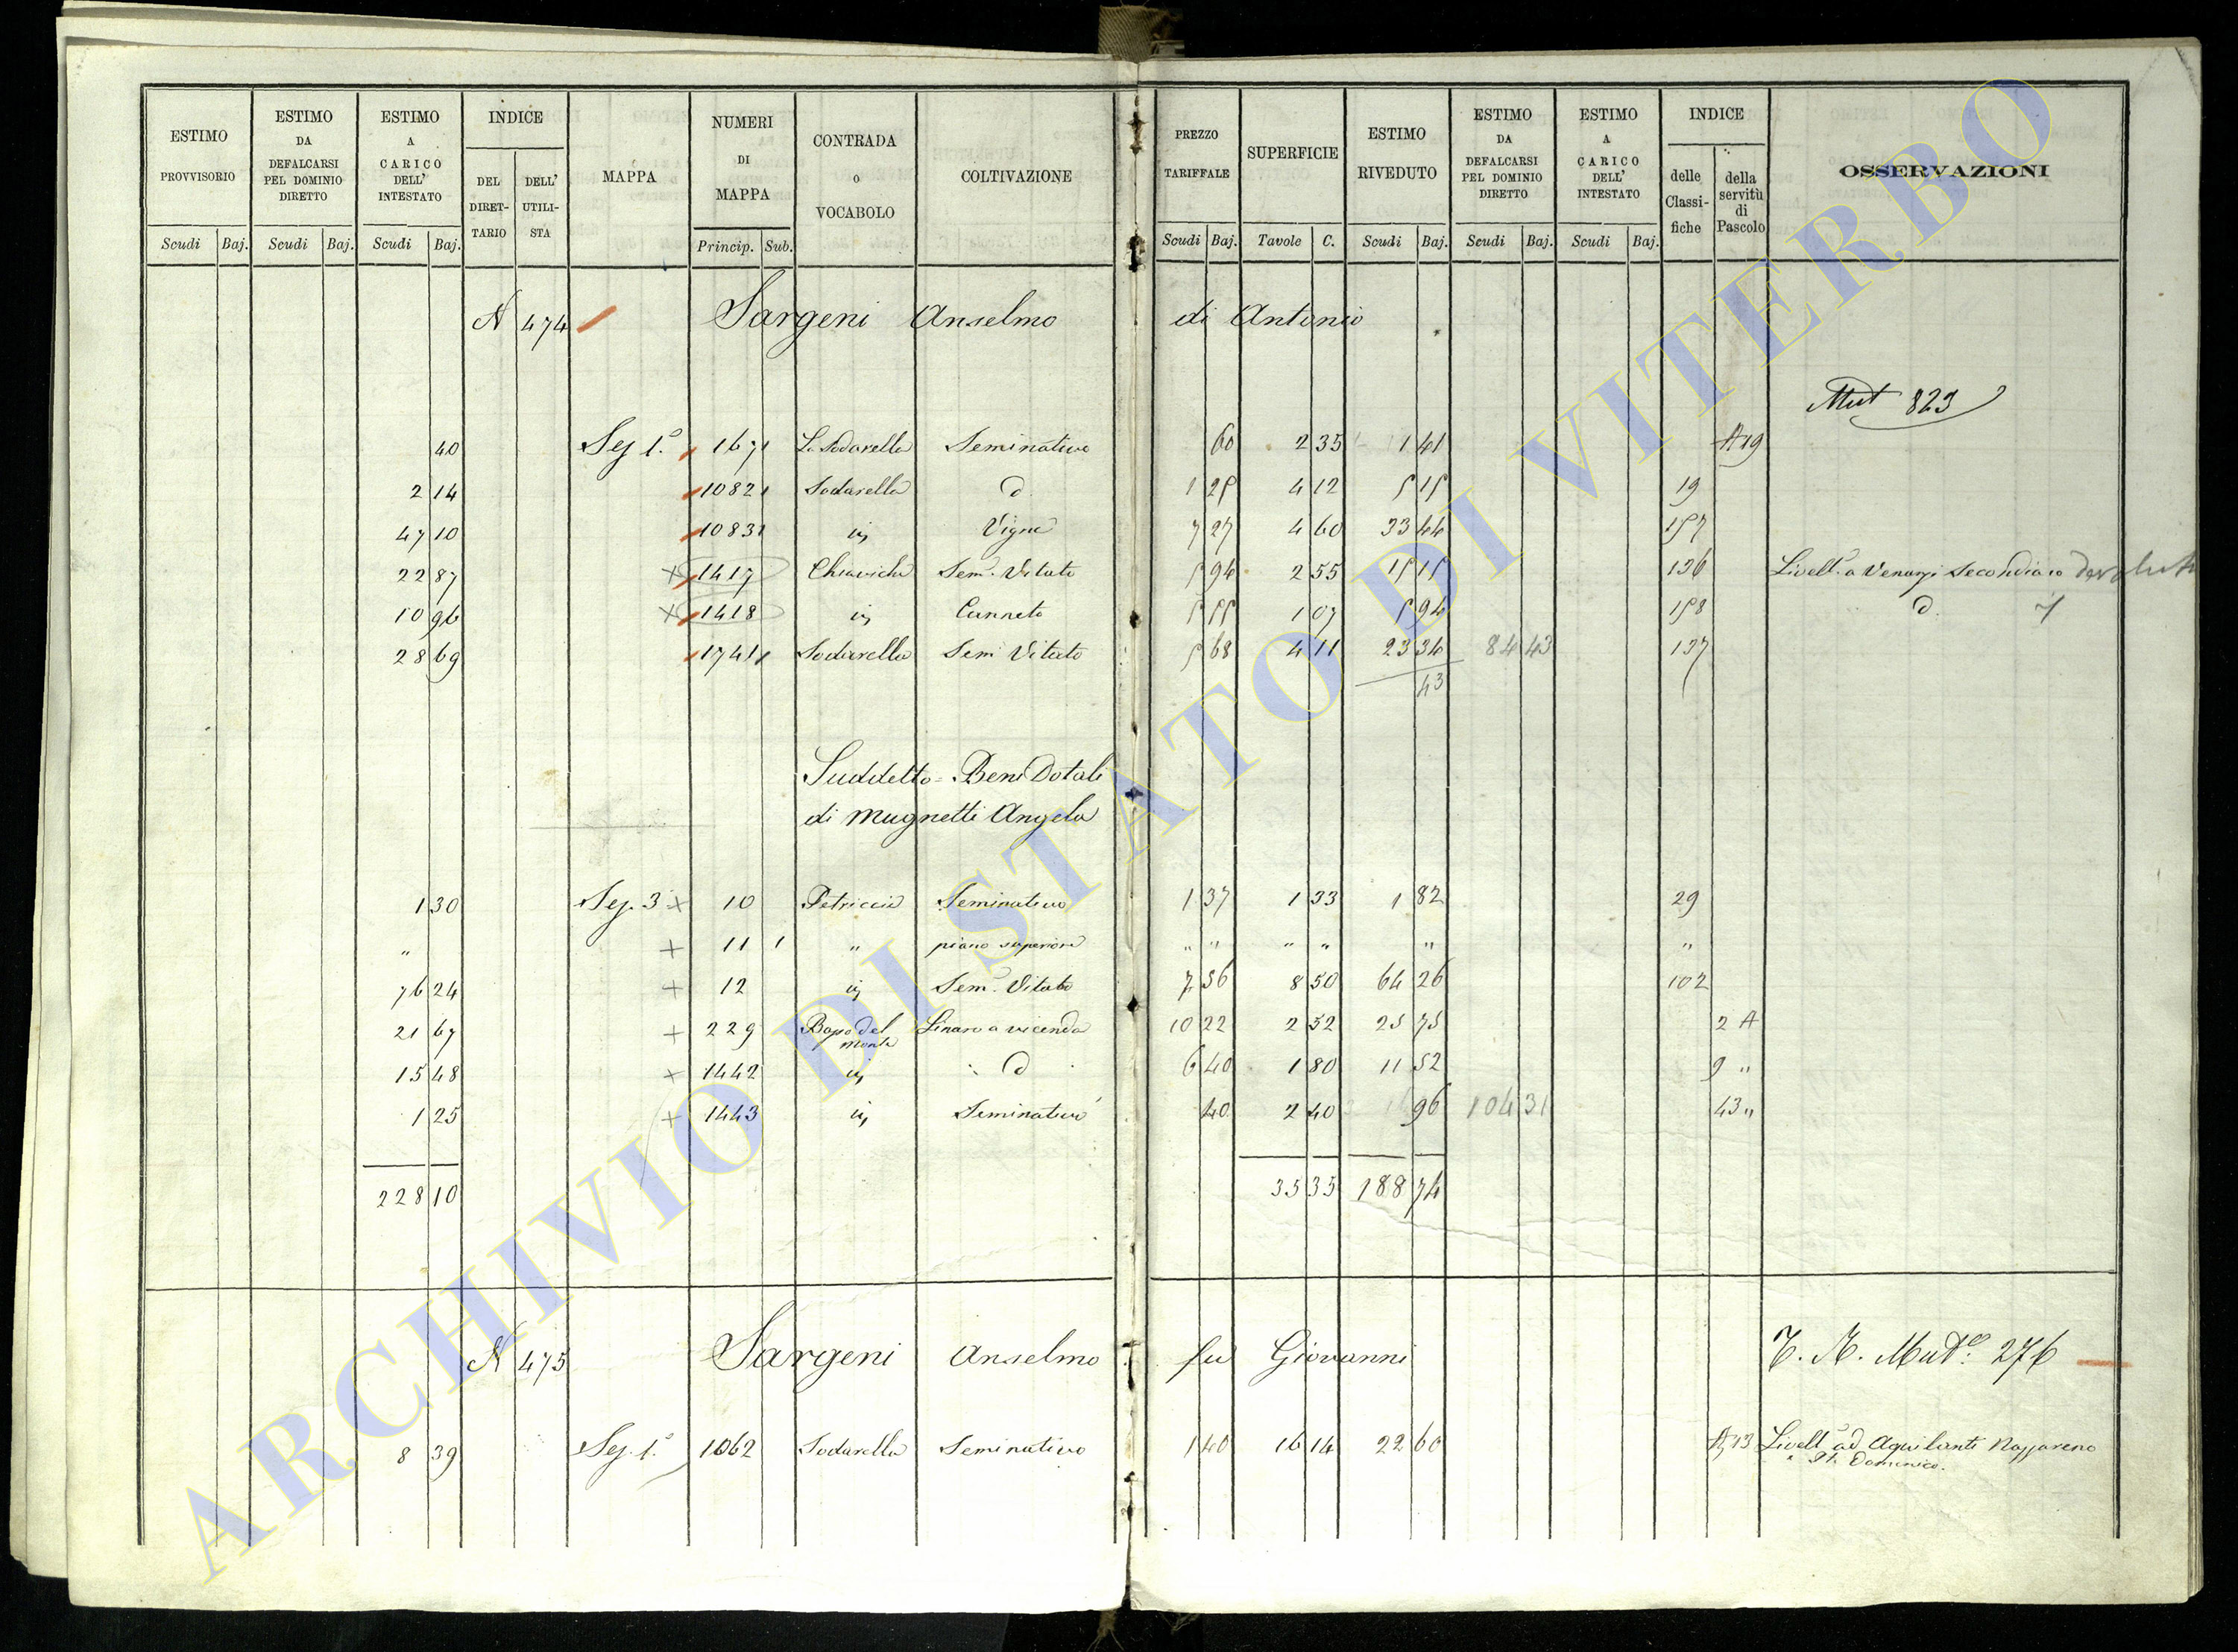 ESTIMO PROVVISORIO | ESTIMO DA DEFALCARSI PEL DOMINIO DIRETTO | ESTIMO A CARICO DELL' INTESTATO | INDICE DEL DIRET-TARIO | DELL' UTILI-STA | MAPPA | NUMERI DI MAPPA | CONTRADA O VOCABOLO | COLTIVAZIONE | PREZZO TARIFFALE | SUPERFICIE | ESTIMO RIVEDUTO | ESTIMO DA DEFALCARSI PEL DOMINIO DIRETTO | ESTIMO A CARICO DELL' INTESTATO | INDICE delle Classi-fiche | della servitù di Pascolo | OSSERVAZIONI
Scudi | Baj. | Scudi | Baj. | Scudi | Baj. | Princip. | Sub. | Scudi | Baj. | Tavole | C. | Scudi | Baj. | Scudi | Baj. | Scudi | Baj.
N 474 Sargeni Anselmo di Antonio
Mut 823
40 | Sez 1.a | 167 1 | La Sodarella | Seminativo | 60 | 2 35 | 1 41 | A 19
2 14 | 1082 1 | Sodarella | d | 1 25 | 4 12 | 5 15 | 19
47 10 | 1083 1 | in | Vigna | 7 27 | 4 60 | 33 44 | 157
22 87 | x 1417 | Chiaviche | Sem. Vitato | 5 94 | 2 55 | 15 15 | 136 | Livell. a Venanzi Secondiano devoluto
10 96 | x 1418 | in | Canneto | 5 55 | 1 07 | 5 94 | 158 | d.
28 69 | 1741 1 | Sodarella | Sem Vitato | 5 68 | 4 11 | 23 34 | 84 43 | 137
43
Suddetto = Beni Dotali
di Mugnetti Angela
1 30 | Sez. 3 x | 10 | Petriccia | Seminativo | 1 37 | 1 33 | 1 82 | 29
" | + | 11 1 | " | piano superiore | " " | " " | " | "
76 24 | + | 12 | in | Sem. Vitato | 7 56 | 8 50 | 64 26 | 102
21 67 | + | 229 | del Monte | Linaro a vicenda | 10 22 | 2 52 | 25 75 | 2 A
15 48 | + | 1442 | in | d | 6 40 | 1 80 | 11 52 | 9 "
1 25 | + | 1443 | in | Seminativo | 40 | 2 40 | 96 | 104 31 | 43 "
228 10 | 35 35 | 188 74
N 475 Sargeni Anselmo fu Giovanni | 276
8 39 | Sez. 1.a | 1062 | Sodarella | Seminativo | 1 40 | 16 14 | 22 60 | A 13 | Livell. ad Aquilanti Nazzareno
Domenico.
ARCHIVIO DI STATO DI VITERBO